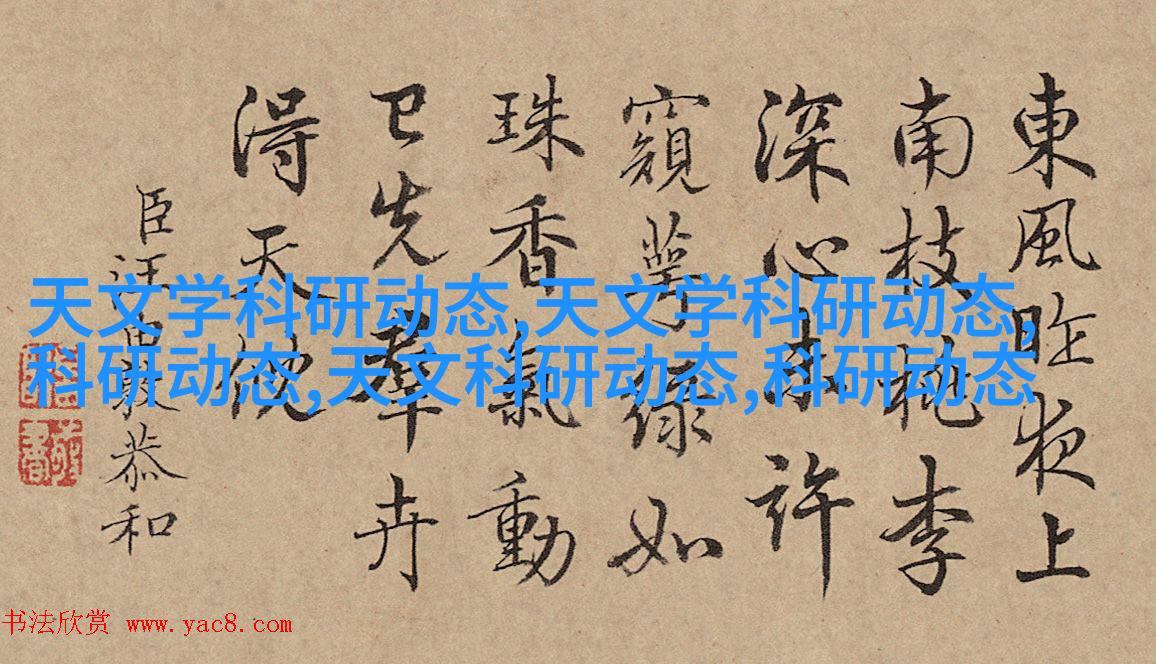 東風昨夜上
南枝桃李
深心未許
窺萼綠如
珠香氣動
已先羣卉
得天倪
臣汪由敦恭和
天文学科研动态,天文学科研动态,
科研动态,天文科研动态,科研动态
书法欣赏 www.yac8.com